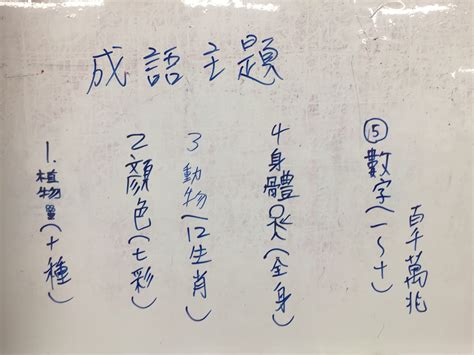 成語主題
1.植物(十種)
2顏色(七彩)
3動物(12生肖)
4身體(全身)
⑤數字(一~十)
百千萬兆